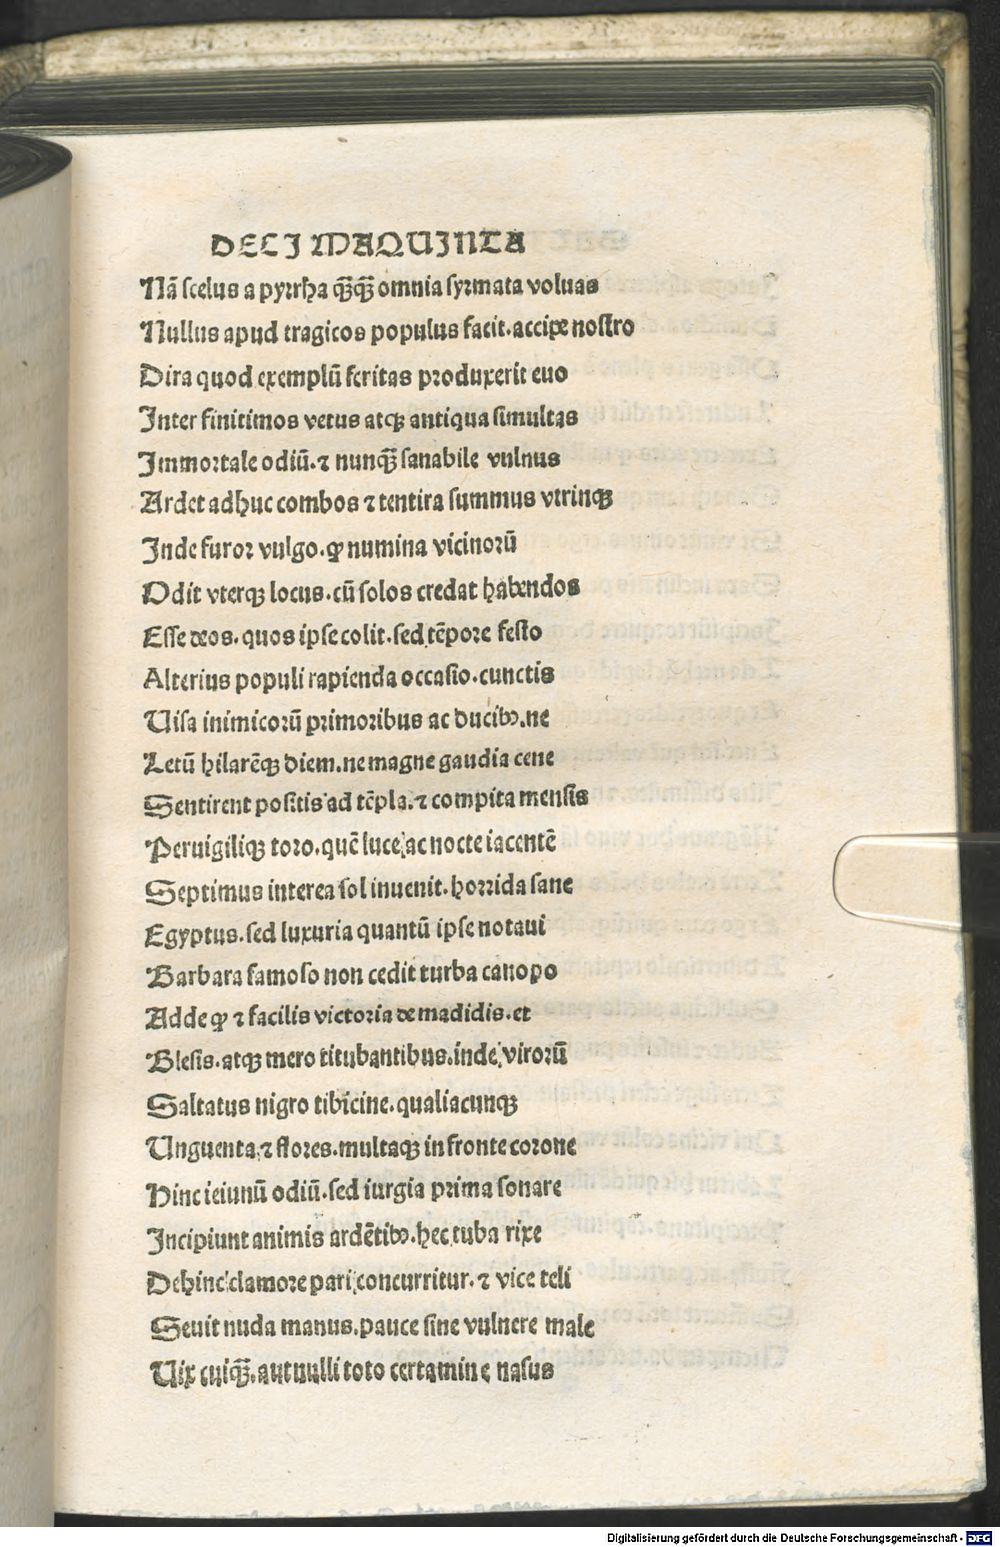 DECIMAQUINTA
Nã scelus a pyrrha q̃q̃ omnia syrmata voluas
Nullus apud tragicos populus facit. accipe nostro
Dira quod exemplũ feritas produxerit euo
Inter finitimos vetus atqꝫ antiqua simultas
Immortale odiũ. ⁊ nunq̃ sanabile vulnus
Ardet adhuc combos ⁊ tentira summus vtrinqꝫ
Inde furor vulgo. ꝙ numina vicinorũ
Odit vterqꝫ locus. cũ solos credat habendos
Esse deos. quos ipse colit. sed tẽpore festo
Alterius populi rapienda occasio. cunctis
Uisa inimicorũ primoribus ac ducibꝰ. ne
Letũ hilarẽqꝫ diem. ne magne gaudia cene
Sentirent positis ad tẽpla. ⁊ compita mensis
Peruigiliqꝫ toro. quẽ luce ac nocte iacentẽ
Septimus interea sol inuenit. horrida sane
Egyptus. sed luxuria quantũ ipse notaui
Barbara famoso non cedit turba canopo
Adde ꝙ ⁊ facilis victoria de madidis. et
Blesis. atqꝫ mero titubantibus. inde virorũ
Saltatus nigro tibicine. qualiacunqꝫ
Unguenta ⁊ flores. multaqꝫ in fronte corone
Hinc ieiunũ odiũ. sed iurgia prima sonare
Incipiunt animis ardẽtibꝰ. hec tuba rixe
Dehinc clamore pari concurritur. ⁊ vice teli
Seuit nuda manus. pauce sine vulnere male
Uix cuiq̃. aut nulli toto certamine nasus
Digitalisierung gefördert durch die Deutsche Forschungsgemeinschaft - DFG